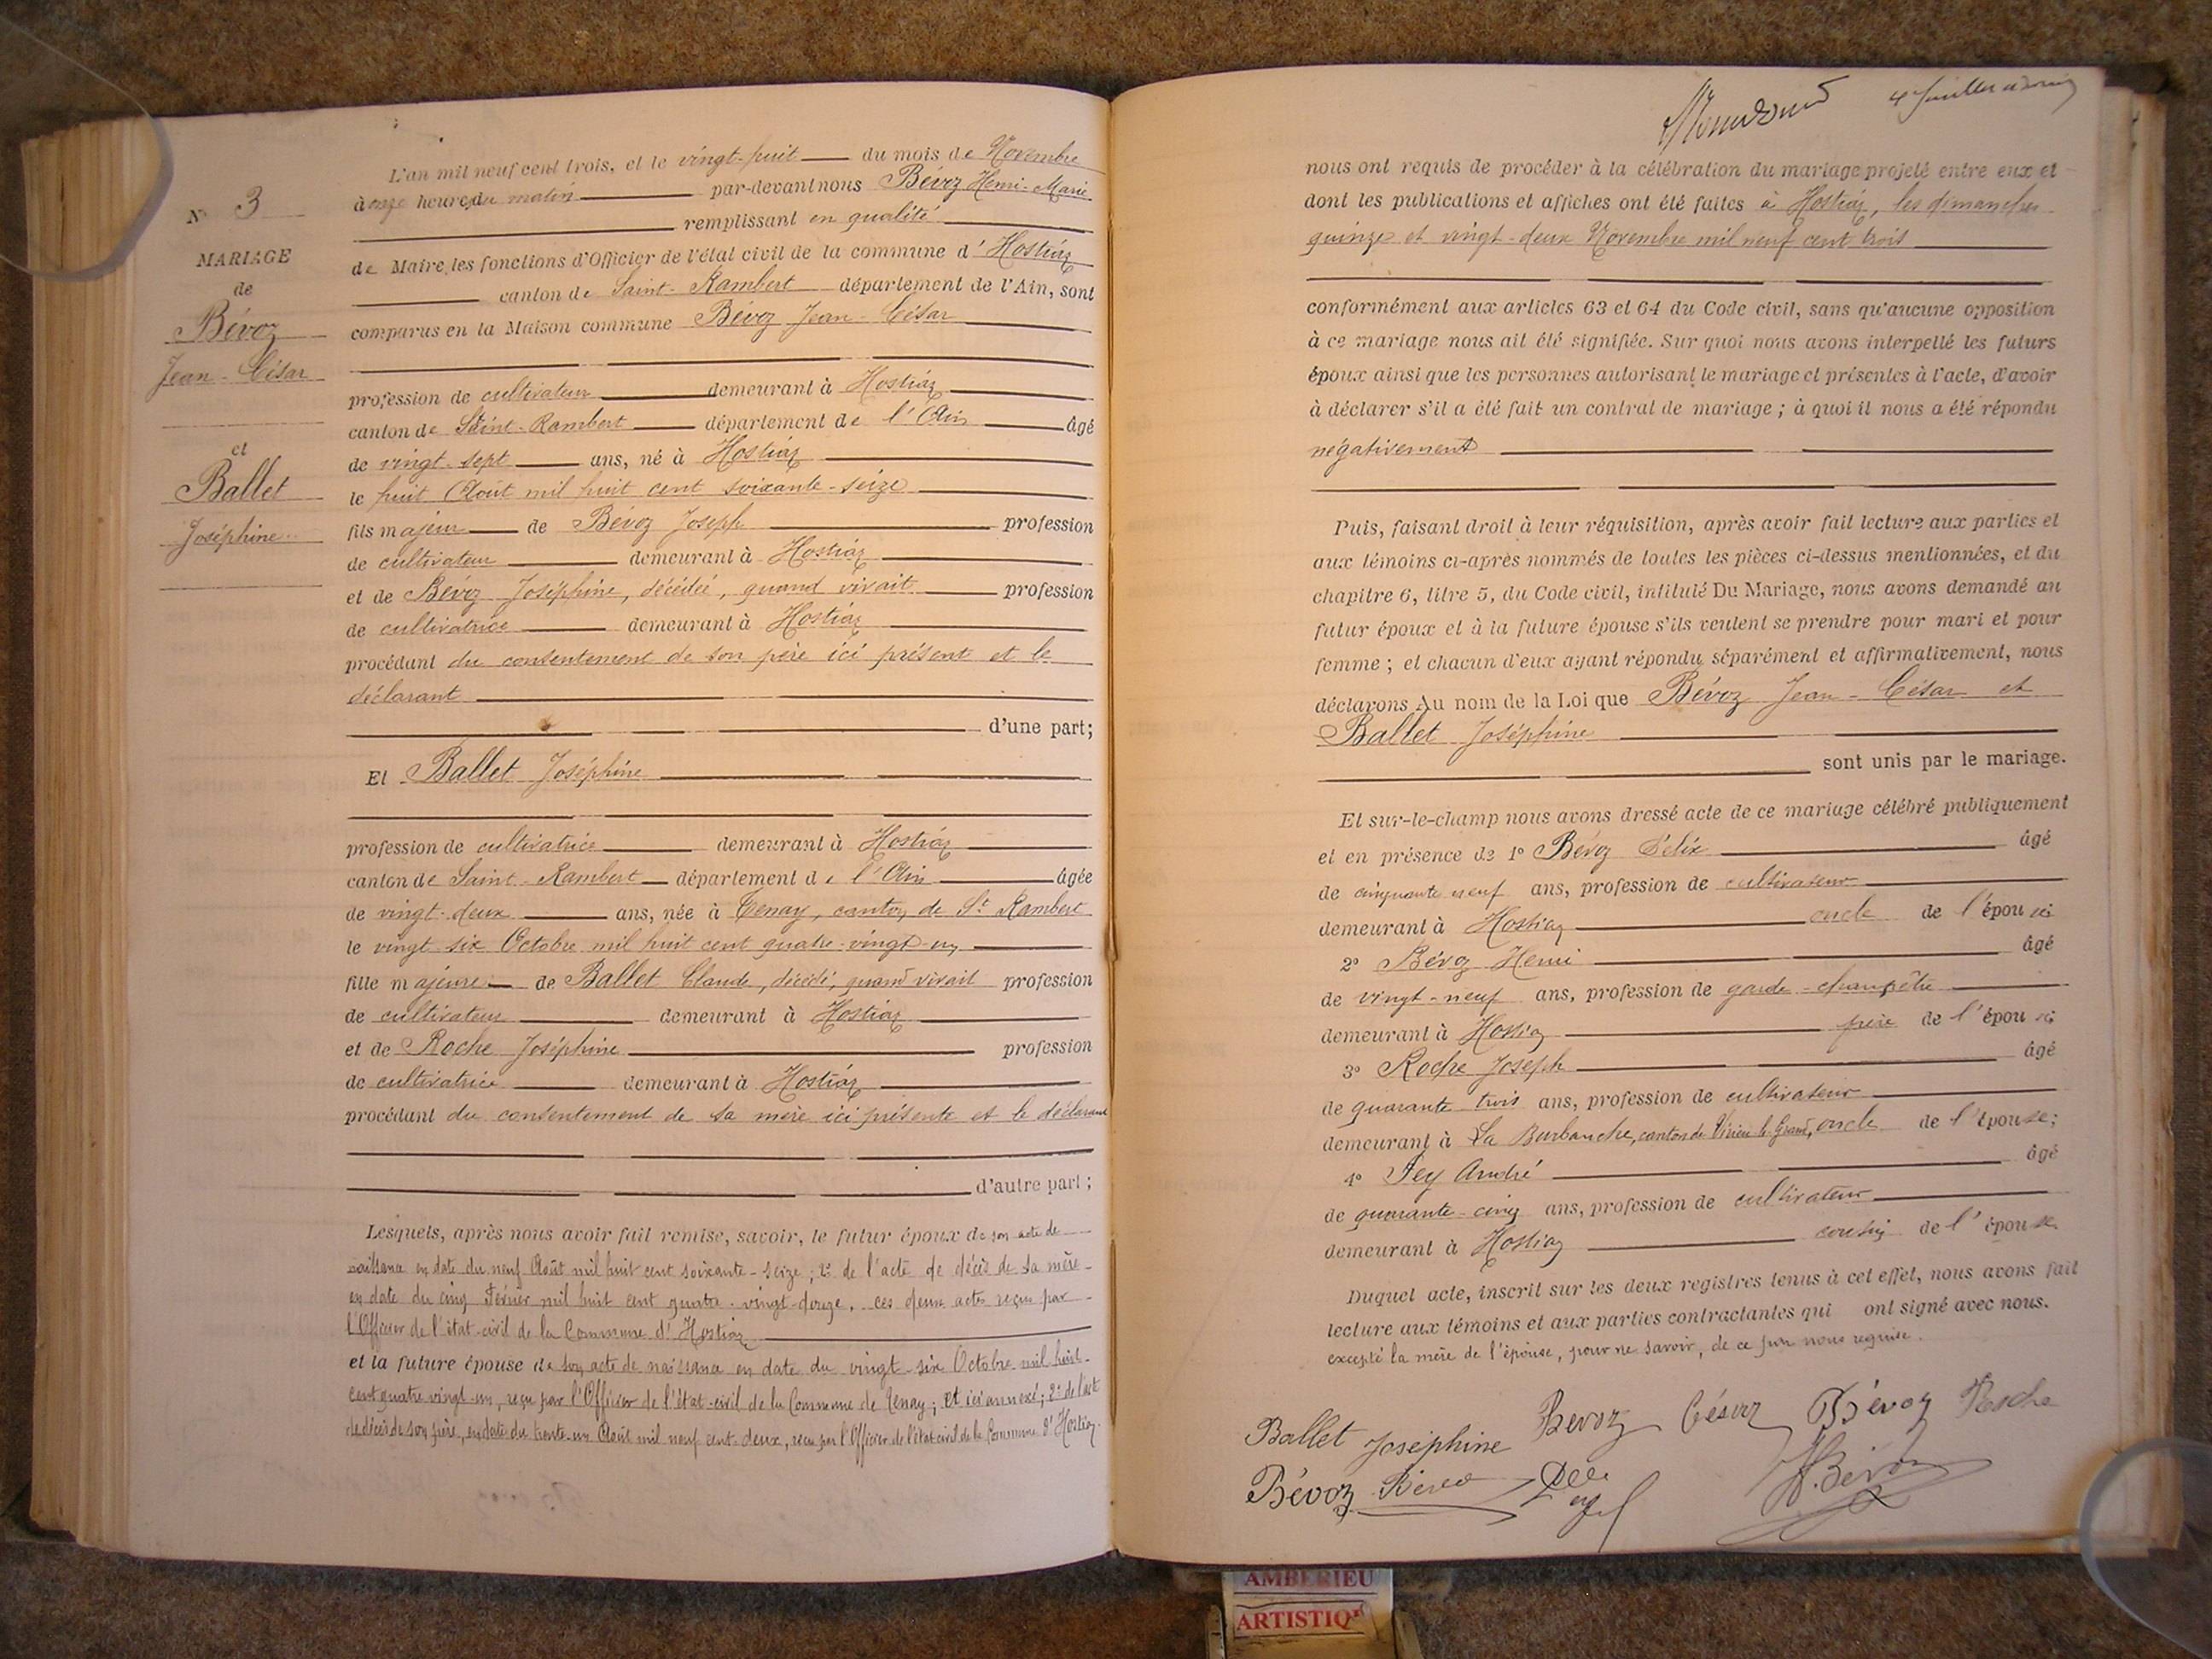 N° 3
MARIAGE
de
Bévoz
Jean-César
et
Ballet
Joséphine
L'an mil neuf cent trois, et le vingt-huit du mois de Novembre
à onze heures du matin par-devant nous Bévoz Henri-Marie
remplissant en qualité
de Maire, les fonctions d'Officier de l'état civil de la commune d'Hostiaz
canton de Saint-Rambert département de l'Ain, sont
comparus en la Maison commune Bévoz Jean-César
profession de cultivateur demeurant à Hostiaz
canton de Saint-Rambert département de l'Ain âgé
de vingt-sept ans, né à Hostiaz
le huit Août mil huit cent soixante-seize
fils majeur de Bévoz Joseph profession
de cultivateur demeurant à Hostiaz
et de Bévoz Joséphine, décédée, quand vivait profession
de cultivatrice demeurant à Hostiaz
procédant du consentement de son père ici présent et le
déclarant
d'une part;
Et Ballet Joséphine
profession de cultivatrice demeurant à Hostiaz
canton de Saint-Rambert département de l'Ain âgée
de vingt-deux ans, née à Tenay, canton de St Rambert
le vingt six Octobre mil huit cent quatre-vingt-un
fille majeure de Ballet Claude, décédé, quand vivait profession
de cultivateur demeurant à Hostiaz
et de Roche Joséphine profession
de cultivatrice demeurant à Hostiaz
procédant du consentement de sa mère ici présente et le déclarant
d'autre part;
Lesquels, après nous avoir fait remise, savoir, le futur époux de son acte de
naissance en date du neuf Août mil huit cent soixante-seize; 2° de l'acte de décès de sa mère
en date du cinq Février mil huit cent quatre-vingt-douze, ces deux actes reçus par
l'Officier de l'état-civil de la Commune d'Hostiaz
et la future épouse de son acte de naissance en date du vingt-six Octobre mil huit-
cent quatre vingt-un, reçu par l'Officier de l'état-civil de la Commune de Tenay; et ici annexé; 2° de l'acte
de décès de son père, en date du trente-un Août mil neuf cent-deux, reçu par l'Officier de l'état civil de la Commune d'Hostiaz.
nous ont requis de procéder à la célébration du mariage projeté entre eux et
dont les publications et affiches ont été faites à Hostiaz, les dimanches
quinze et vingt-deux Novembre mil neuf cent trois
conformément aux articles 63 et 64 du Code civil, sans qu'aucune opposition
à ce mariage nous ait été signifiée. Sur quoi nous avons interpellé les futurs
époux ainsi que les personnes autorisant le mariage et présentes à l'acte, d'avoir
à déclarer s'il a été fait un contrat de mariage; à quoi il nous a été répondu
négativement
Puis, faisant droit à leur réquisition, après avoir fait lecture aux parties et
aux témoins ci-après nommés de toutes les pièces ci-dessus mentionnées, et du
chapitre 6, titre 5, du Code civil, intitulé Du Mariage, nous avons demandé au
futur époux et à la future épouse s'ils veulent se prendre pour mari et pour
femme; et chacun d'eux ayant répondu séparément et affirmativement, nous
déclarons Au nom de la Loi que Bévoz Jean-César et
Ballet Joséphine
sont unis par le mariage.
Et sur-le-champ nous avons dressé acte de ce mariage célébré publiquement
et en présence de 1° Bévoz Félix âgé
de cinquante neuf ans, profession de cultivateur
demeurant à Hostiaz oncle de l'époux;
2° Bévoz Henri âgé
de vingt-neuf ans, profession de garde-champêtre
demeurant à Hostiaz frère de l'époux;
3° Roche Joseph âgé
de quarante trois ans, profession de cultivateur
demeurant à La Burbanche, canton de Virieu le Grand, oncle de l'épouse;
4° Fey André âgé
de quarante-cinq ans, profession de cultivateur
demeurant à Hostiaz cousin de l'épouse.
Duquel acte, inscrit sur les deux registres tenus à cet effet, nous avons fait
lecture aux témoins et aux parties contractantes qui ont signé avec nous.
excepté la mère de l'épouse, pour ne savoir, de ce fait nous requise.
Ballet Joséphine Bevoz César Bévoz Roche
Bévoz H. Bévoz
AMBERIEU
ARTISTIQ